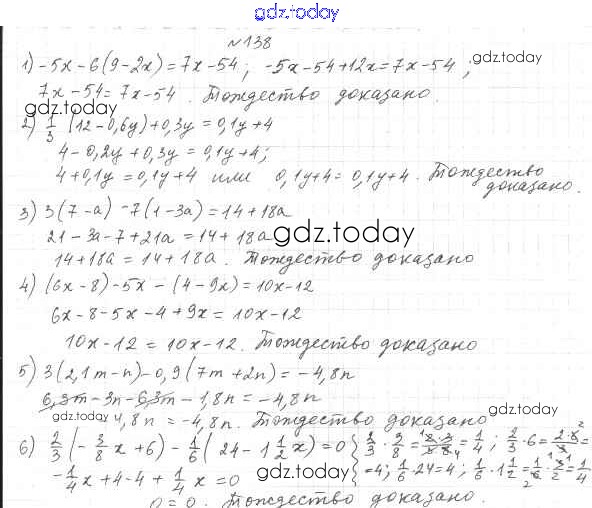 gdz.today
№138
1) -5x-6(9-2x)=7x-54; -5x-54+12x=7x-54; gdz.today
7x-54=7x-54. Тождество доказано.
gdz.today
2) 1/3 (12-0,6y)+0,3y=0,1y+4
4-0,2y+0,3y=0,1y+4;
4+0,1y=0,1y+4 или 0,1y+4=0,1y+4. Тождество
доказано.
3) 3(7-a)-7(1-3a)=14+18a
21-3a-7+21a=14+18a gdz.today
14+18a=14+18a. Тождество доказано
4) (6x-8)-5x-(4-9x)=10x-12
6x-8-5x-4+9x=10x-12
10x-12=10x-12. Тождество доказано
5) 3(2,1m-n)-0,9(7m+2n)=-4,8n
6,3m-3n-6,3m-1,8n=-4,8n
gdz.today 4,8n=-4,8n. Тождество доказано
6) 2/3(-3/8x+6)-1/6(24-1 1/2x)=0 { 2/3·3/8=2·3/3·8=1/4; 2/3·6=2·6/3=
-1/4x+4-4+1/4x=0 gdz.today =4; 1/6·24=4; 1/6·1 1/2=1/6·3/2=1/4
0=0. Тождество доказано.